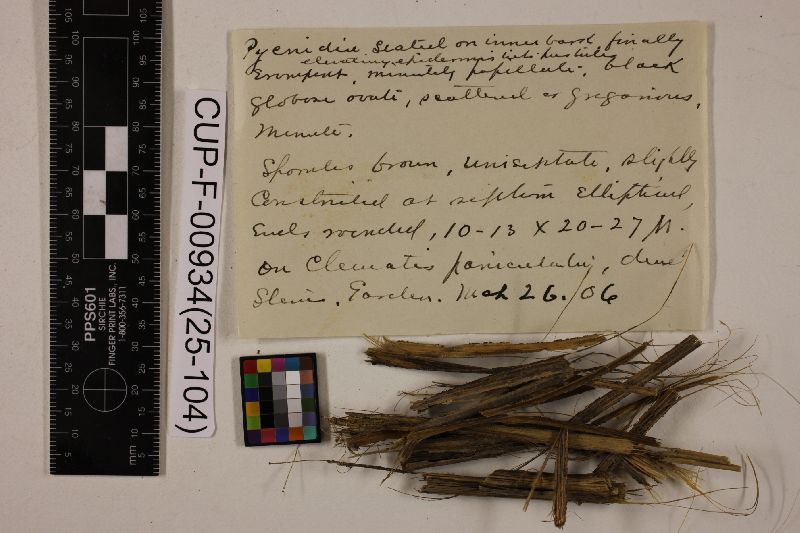 Pycnidia seated on inner bark finally
elevating epidermis into pustules
Erumpent, minutely papillate. black
globose ovate, scattered or gregarious,
minute.
Sporules brown, uniseptate, slightly
Constricted at septum elliptical,
Ends rounded, 10-13 X 20-27 µ.
on Clematis paniculata, dead
Stems. Garden. Mch 26. 06
CUP-F-00934(25-104)
PPS601
SIRCHIE
FINGER PRINT LABS, INC.
1-800-356-7311
50 45 40 35 30 25 20 15 10 5
mm